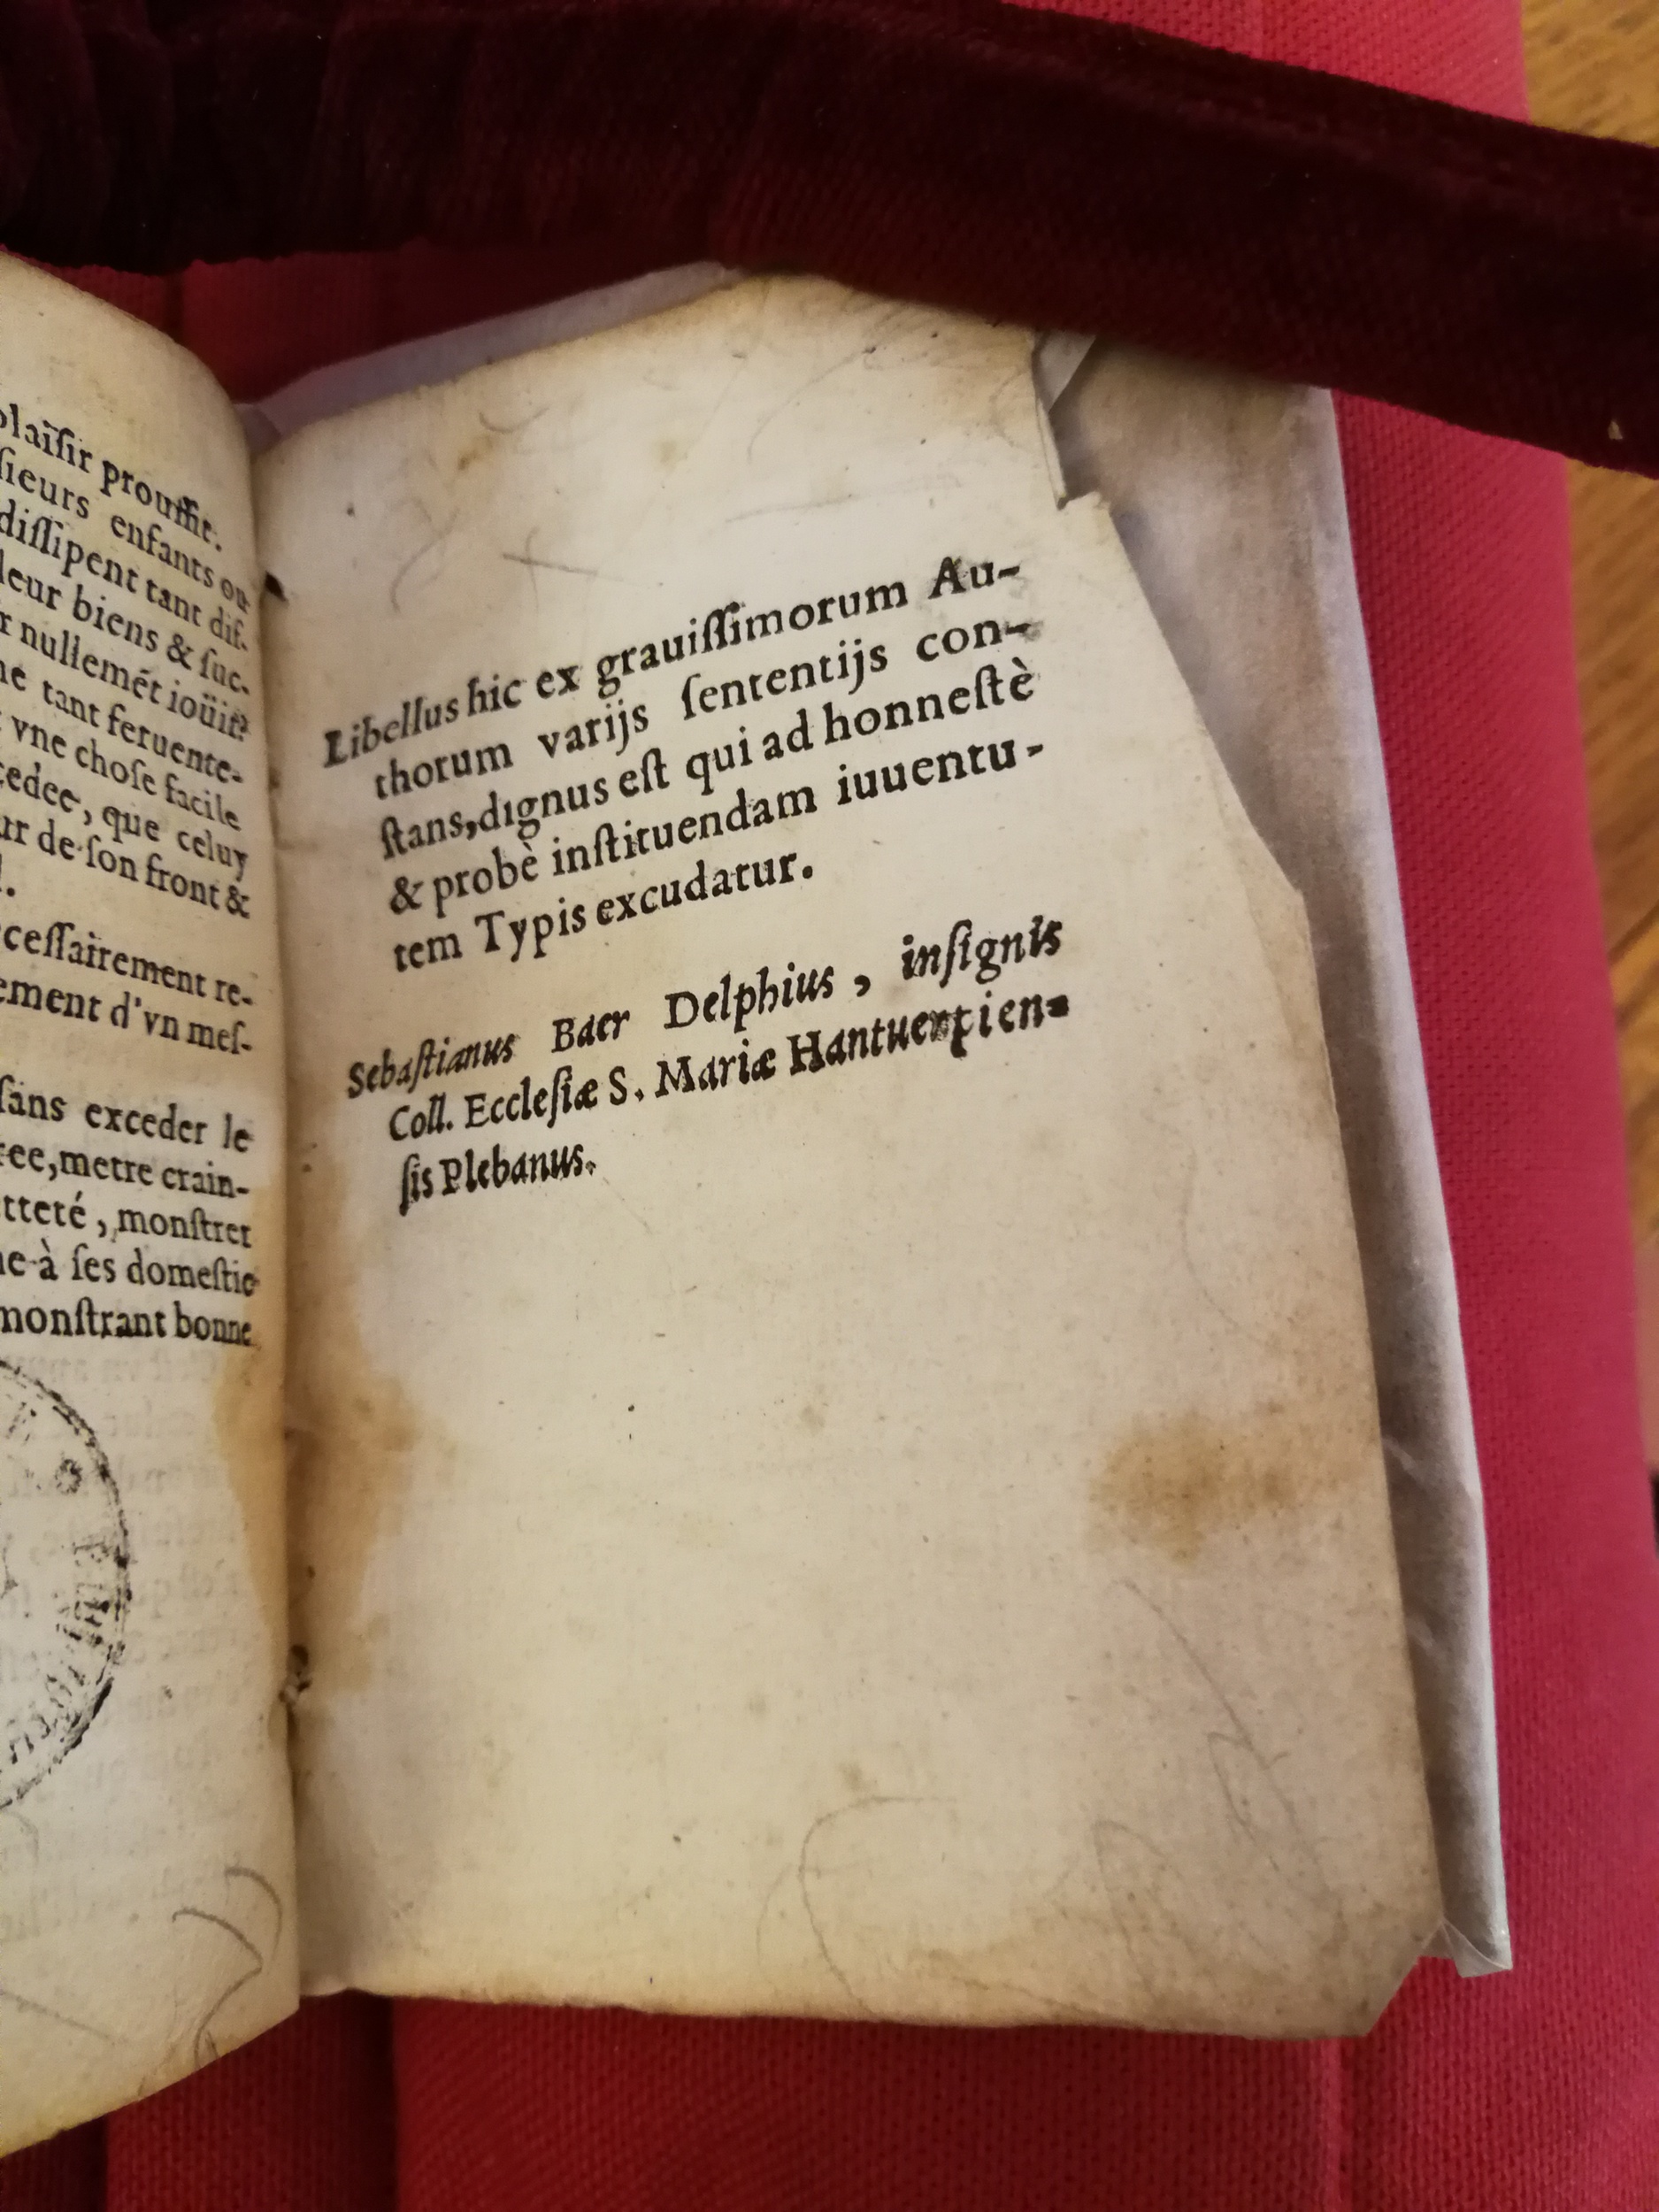 plaiſir prouffit.
ſieurs enfants ou
diſſipent tant diſ-
leur biens & ſuc-
r nullemét ioüit?
ne tant feruente-
vne choſe facile
cedee, que celuy
ur de ſon front &
ceſſairement re-
ement d'vn meſ-
ſans exceder le
ree, metre crain-
tteté, monſtrer
ne à ſes domeſtic
monſtrant bonne
Libellus hic ex grauiſſimorum Au-
thorum varijs ſententijs con-
ſtans, dignus eſt qui ad honneſtè
& probè inſtituendam iuuentu-
tem Typis excudatur.
Sebaſtianus Baer Delphius, inſignis
Coll. Eccleſiæ S. Mariæ Hantuerpien-
ſis Plebanus.